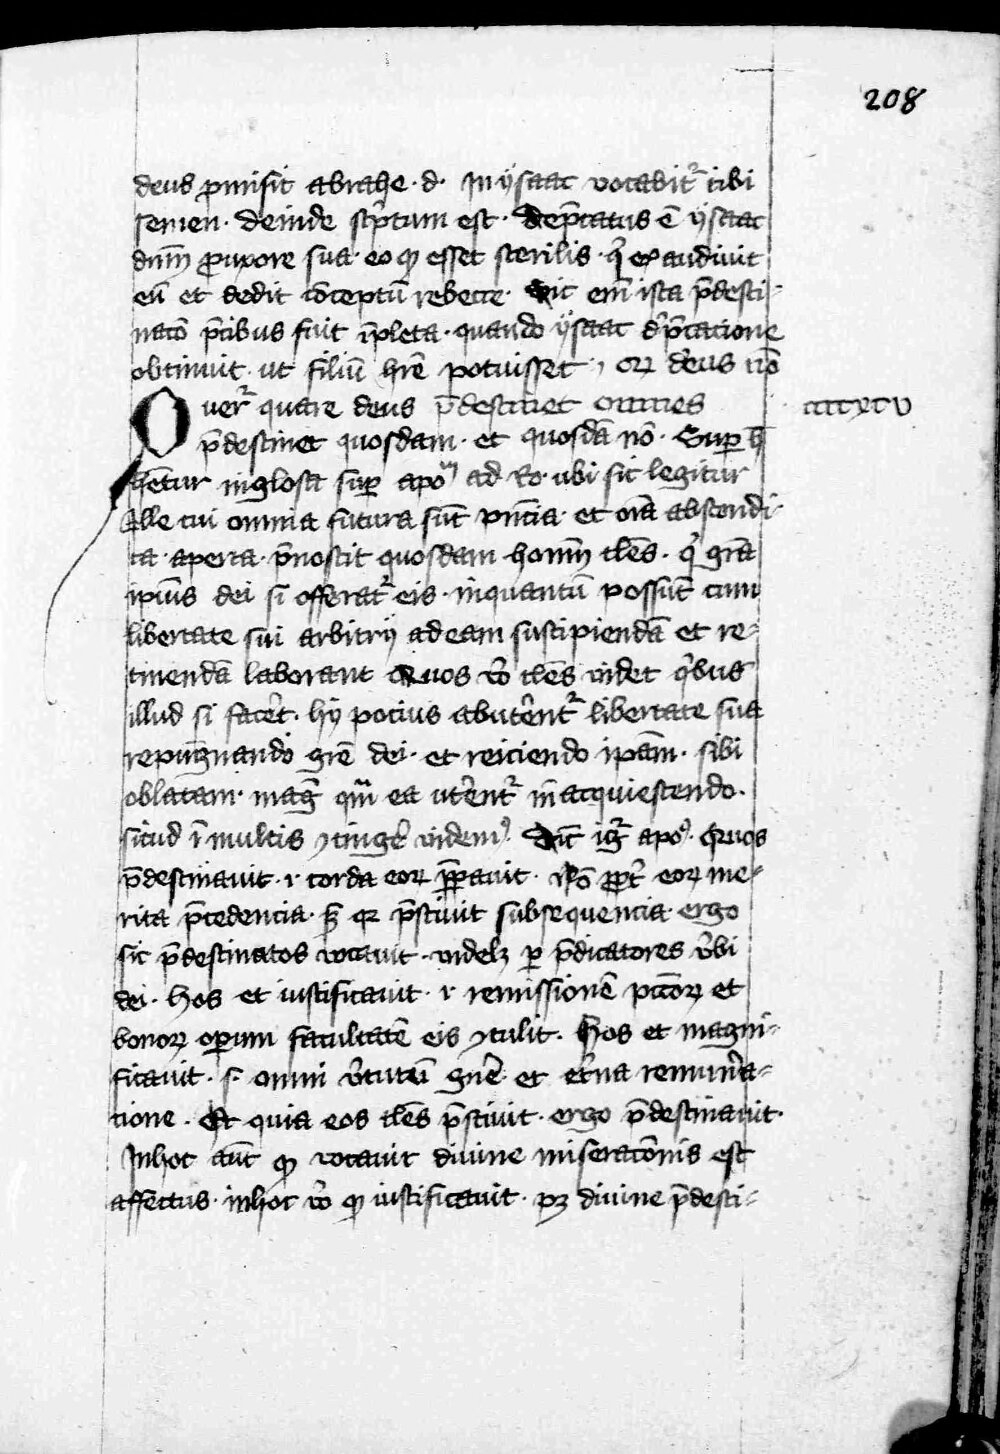 208
deus ꝓmisit abrahe · d · In ysaac vocabitᷣ tibi
semen · deinde scͥptum est · Dep̄catus ē ysaac
dn̄m ꝓ uxore sua · eo ꝙ esset sterilis · qͥ exaudiuit
eū et dedit cōceptū rebecce · Sic em̄ ista p̄desti-
natō p̄cibus fuit īpleta · quando ysaac dep̄catione
obtinuit · ut filiū hr̄e potuisset , Cꝝ deus nō
Querᷣ quare deus p̄destinet omnes cccxcv
p̄destinet quosdam · et quosdā nō · Suꝑ h̄
hētur in glosa suꝑ apo ad Ro · ubi sic legitur
Ille cui omnia futura sūt pn̄cia · et oīa abscondi-
ta · aperta · p̄noscit quosdam homīn tˡes · qͥ grā
ipīus dei si offeratᷣ eis · inquantū possūt cum
libertate sui arbitrij ad eam suscipiendā et re-
tinendā laborant Quos v̊o tˡes videt qͥbus
illud si facet̉ · hij pocius abut̉entᷣ libertate sua
repūgnando gr̄e dei · et reiciendo ip̄am · sibi
oblatam · mag̉ qͣm ea ut̉entᷣ in acquiescendo ·
sicud ī multis ꝯting̉e videmꝰ · Dic̄ igᷣ apoꝰ · Quos
p̄destinauit · i · corda eoꝝ p̄ꝑauit · Nō ꝓpt̉ eoꝝ me-
rita p̄cedencia · sꝫ qꝛ p̄sciuit subsequencia ergo
sic p̄destinatos vocauit · videlꝫ ꝑ p̄dicatores v̉bi
dei · Hos et iustificauit · i · remissionē pc̄coꝝ et
bonoꝝ oꝑum facultatē eis ꝯtulit · Hos et magni-
ficauit · s · omni v̉tutū gn̄e et et̉na remun̉a-
cione · Et quia eos tˡes p̄sciuit · ergo p̄destinauit ·
In hoc aūt ꝙ vocauit diuine miseracōnis est
affectus · in hoc v̊o ꝙ iustificauit · pꝫ diuine p̄desti-